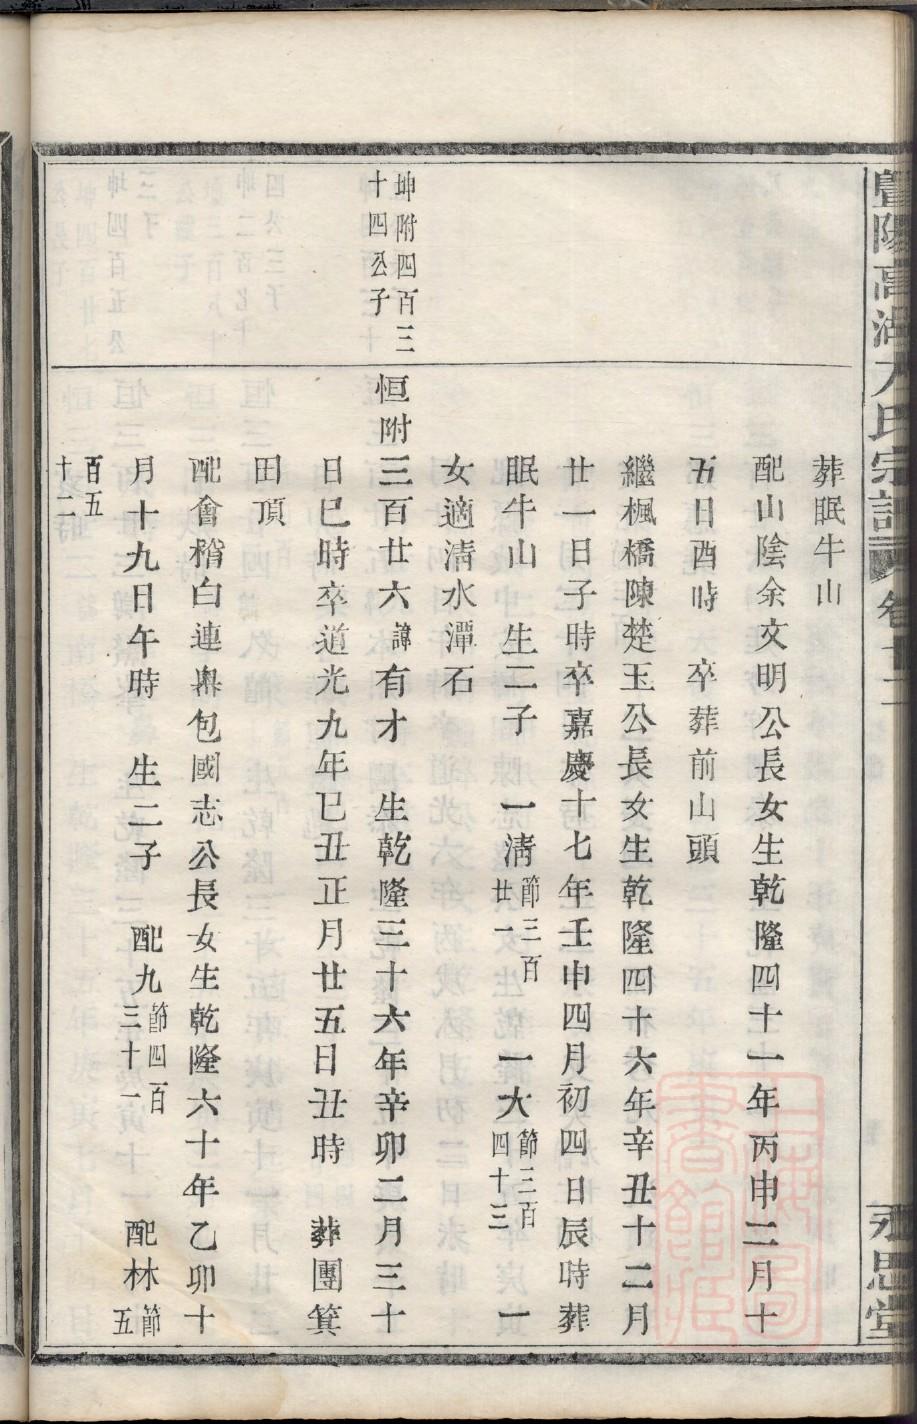 暨陽高湖方氏宗譜 卷十二 永思堂
葬眠牛山
配山陰余文明公長女生乾隆四十一年丙申二月十
五日酉時 卒葬前山頭
繼楓橋陳楚玉公長女生乾隆四十六年辛丑十二月
廿一日子時卒嘉慶十七年壬申四月初四日辰時葬
眠牛山 生二子 一淸節三百廿一 一大節三百四十三 一
女適淸水潭石
坤附四百三十四公子
恒附三百廿六諱有才 生乾隆三十六年辛卯二月三十
日巳時卒道光九年己丑正月廿五日丑時 葬團箕
田頂
配會稽白連嶴包國志公長女生乾隆六十年乙卯十
月十九日午時 生二子 配九節四百三十一 配林節五
百五十二